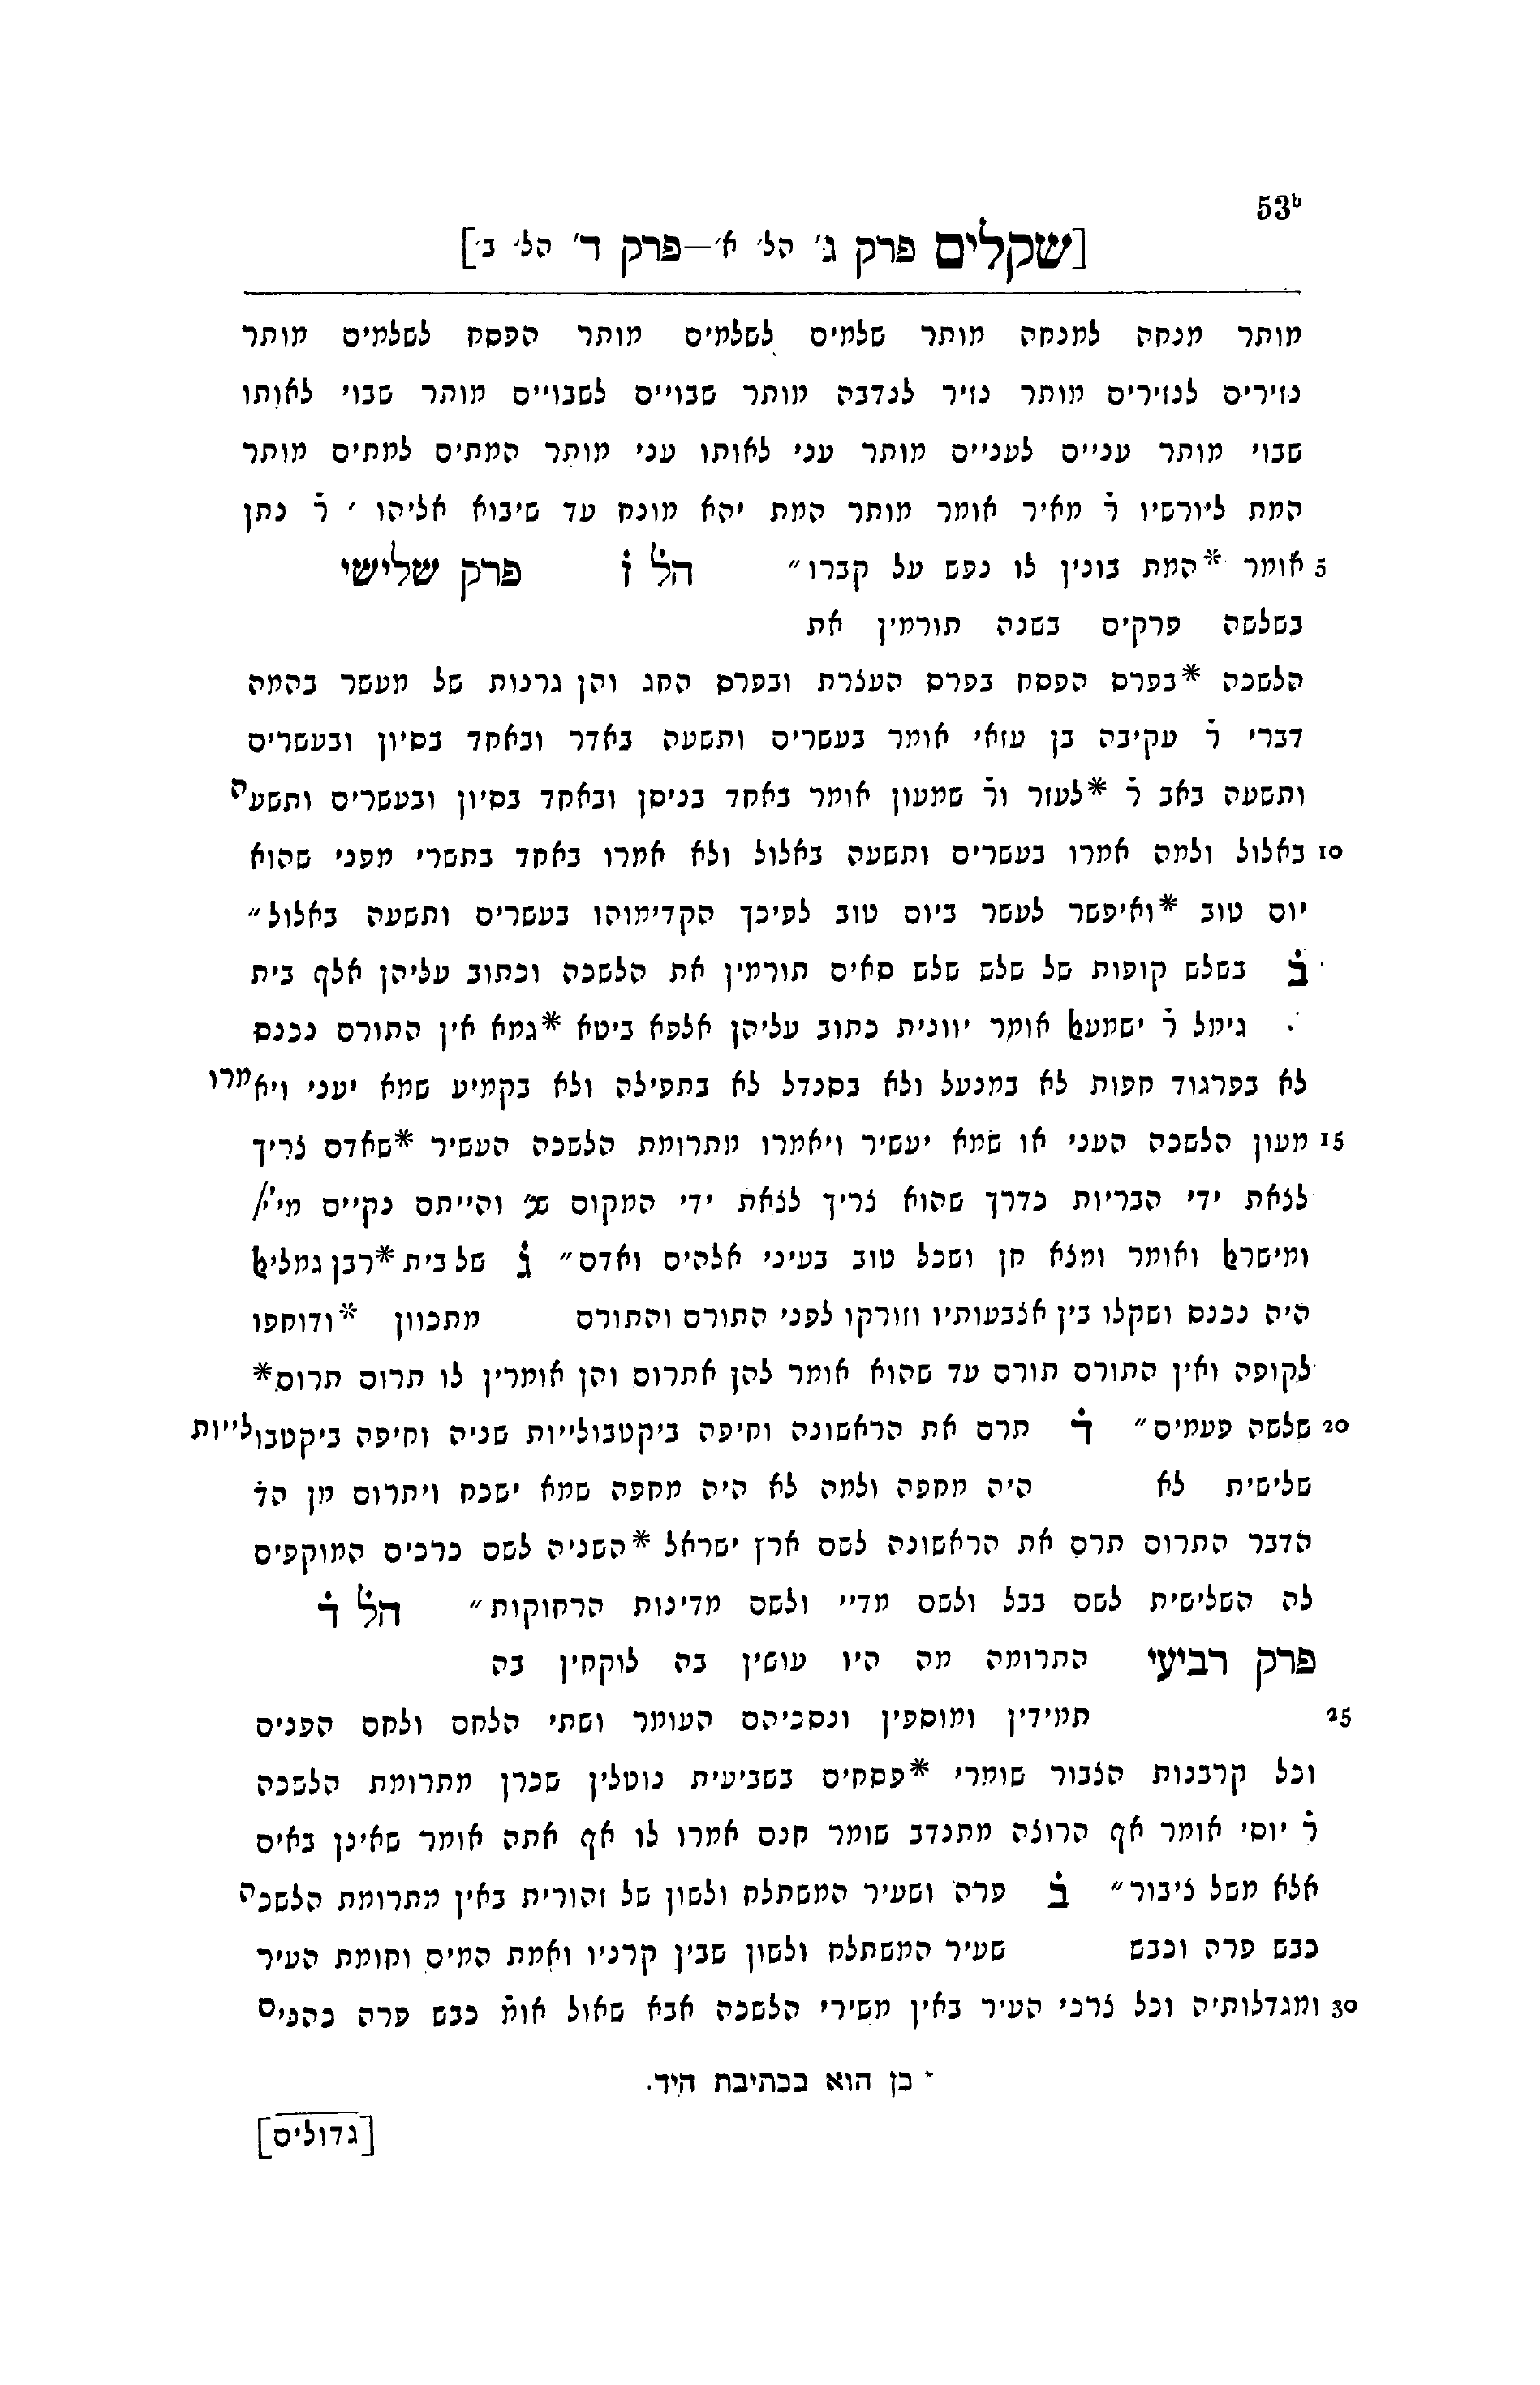 53ᵇ
[שקלים פרק ג׳ הל׳ א׳—פרק ד׳ הל׳ ב׳]
מותר מנחה למנחה מותר שלמים לשלמים מותר הפסח לשלמים מותר
נזירים לנזירים מותר נזיר לנדבה מותר שבויים לשבויים מותר שבוי לאותו
שבוי מותר עניים לעניים מותר עני לאותו עני מותר המתים למתים מותר
המת ליורשיו ר̇ מאיר אומר מותר המת יהא מונח עד שיבוא אליהו ׳ ר̇ נתן
5 אומר *המת בונין לו נפש על קברו״ הל̇ ז̇ פרק שלישי
בשלשה פרקים בשנה תורמין את
הלשכה *בפרס הפסח בפרס העצרת ובפרס החג והן גרנות של מעשר בהמה
דברי ר̇ עקיבה בן עזאי אומר בעשרים ותשעה באדר ובאחד בסיון ובעשרים
ותשעה באב ר̇ *לעזר ור̇ שמעון אומר באחד בניסן ובאחד בסיון ובעשרים ותשעה
10 באלול ולמה אמרו בעשרים ותשעה באלול ולא אמרו באחד בתשרי מפני שהוא
יום טוב *ואיפשר לעשר ביום טוב לפיכך הקדימוהו בעשרים ותשעה באלול״
ב̇ בשלש קופות של שלש שלש סאים תורמין את הלשכה וכתוב עליהן אלף בית
גימל ר̇ ישמעאל אומר יוונית כתוב עליהן אלפא ביטא *גמא אין התורם נכנס
לא בפרגוד חפות לא במנעל ולא בסנדל לא בתפילה ולא בקמיע שמא יעני ויאמרו
15 מעון הלשכה העני או שמא יעשיר ויאמרו מתרומת הלשכה העשיר *שאדם צריך
לצאת ידי הבריות כדרך שהוא צריך לצאת ידי המקום שנ׳ והייתם נקיים מיי׳/
ומישראל ואומר ומצא חן ושכל טוב בעיני אלהים ואדם״ ג̇ של בית *רבן גמליאל
היה נכנס ושקלו בין אצבעותיו וזורקו לפני התורם והתורם מתכוון *ודוחפו
לקופה ואין התורם תורם עד שהוא אומר להן אתרום והן אומרין לו תרום תרום*
20 שלשה פעמים״ ד̇ תרם את הראשונה וחיפה ביקטבולייות שניה וחיפה ביקטבולייות
שלישית לא היה מחפה ולמה לא היה מחפה שמא ישכח ויתרום מן הד̇
הדבר התרום תרם את הראשונה לשם ארץ ישראל *השניה לשם כרכים המוקפים
לה השלישית לשם בבל ולשם מדיי ולשם מדינות הרחוקות״ הל̇ ד̇
פרק רביעי התרומה מה היו עושין בה לוקחין בה
25 תמידין ומוספין ונסכיהם העומר ושתי הלחם ולחם הפנים
וכל קרבנות הצבור שומרי *פסחים בשביעית נוטלין שכרן מתרומת הלשכה
ר̇ יוסי אומר אף הרוצה מתנדב שומר חנם אמרו לו אף אתה אומר שאינן באים
אלא משל ציבור״ ב̇ פרה ושעיר המשתלח ולשון של זהורית באין מתרומת הלשכה
כבש פרה וכבש שעיר המשתלח ולשון שבין קרניו ואמת המים וחומת העיר
30 ומגדלותיה וכל צרכי העיר באין משירי הלשכה אבא שאול אומ̇ כבש פרה כהנים
* כן הוא בכתיבת היד.
[גדולים]